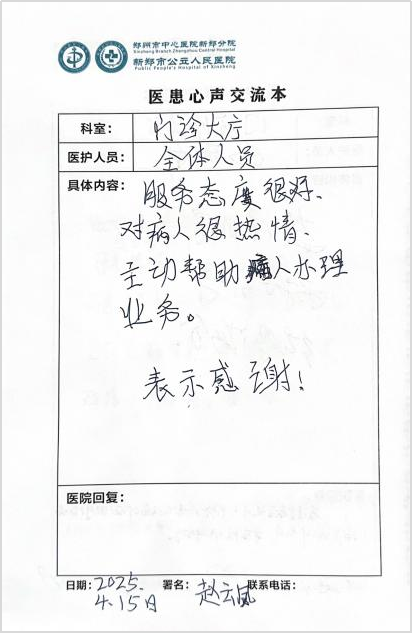 郑州市中心医院新郑分院
Xinzheng Branch Zhengzhou Central Hospital
新郑市公立人民医院
Public People's Hospital of Xinzheng
医患心声交流本
科室： 门诊大厅
医护人员： 全体人员
具体内容： 服务态度很好、
对病人很热情、
主动帮助病人办理
业务。
表示感谢！
医院回复：
日期：2025. 署名：赵云凤 联系电话：
4.15日